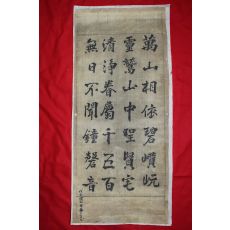 萬山相依碧巑岏
靈鷲山中聖賢宅
清淨眷屬千五百
無日不聞鍾磬音